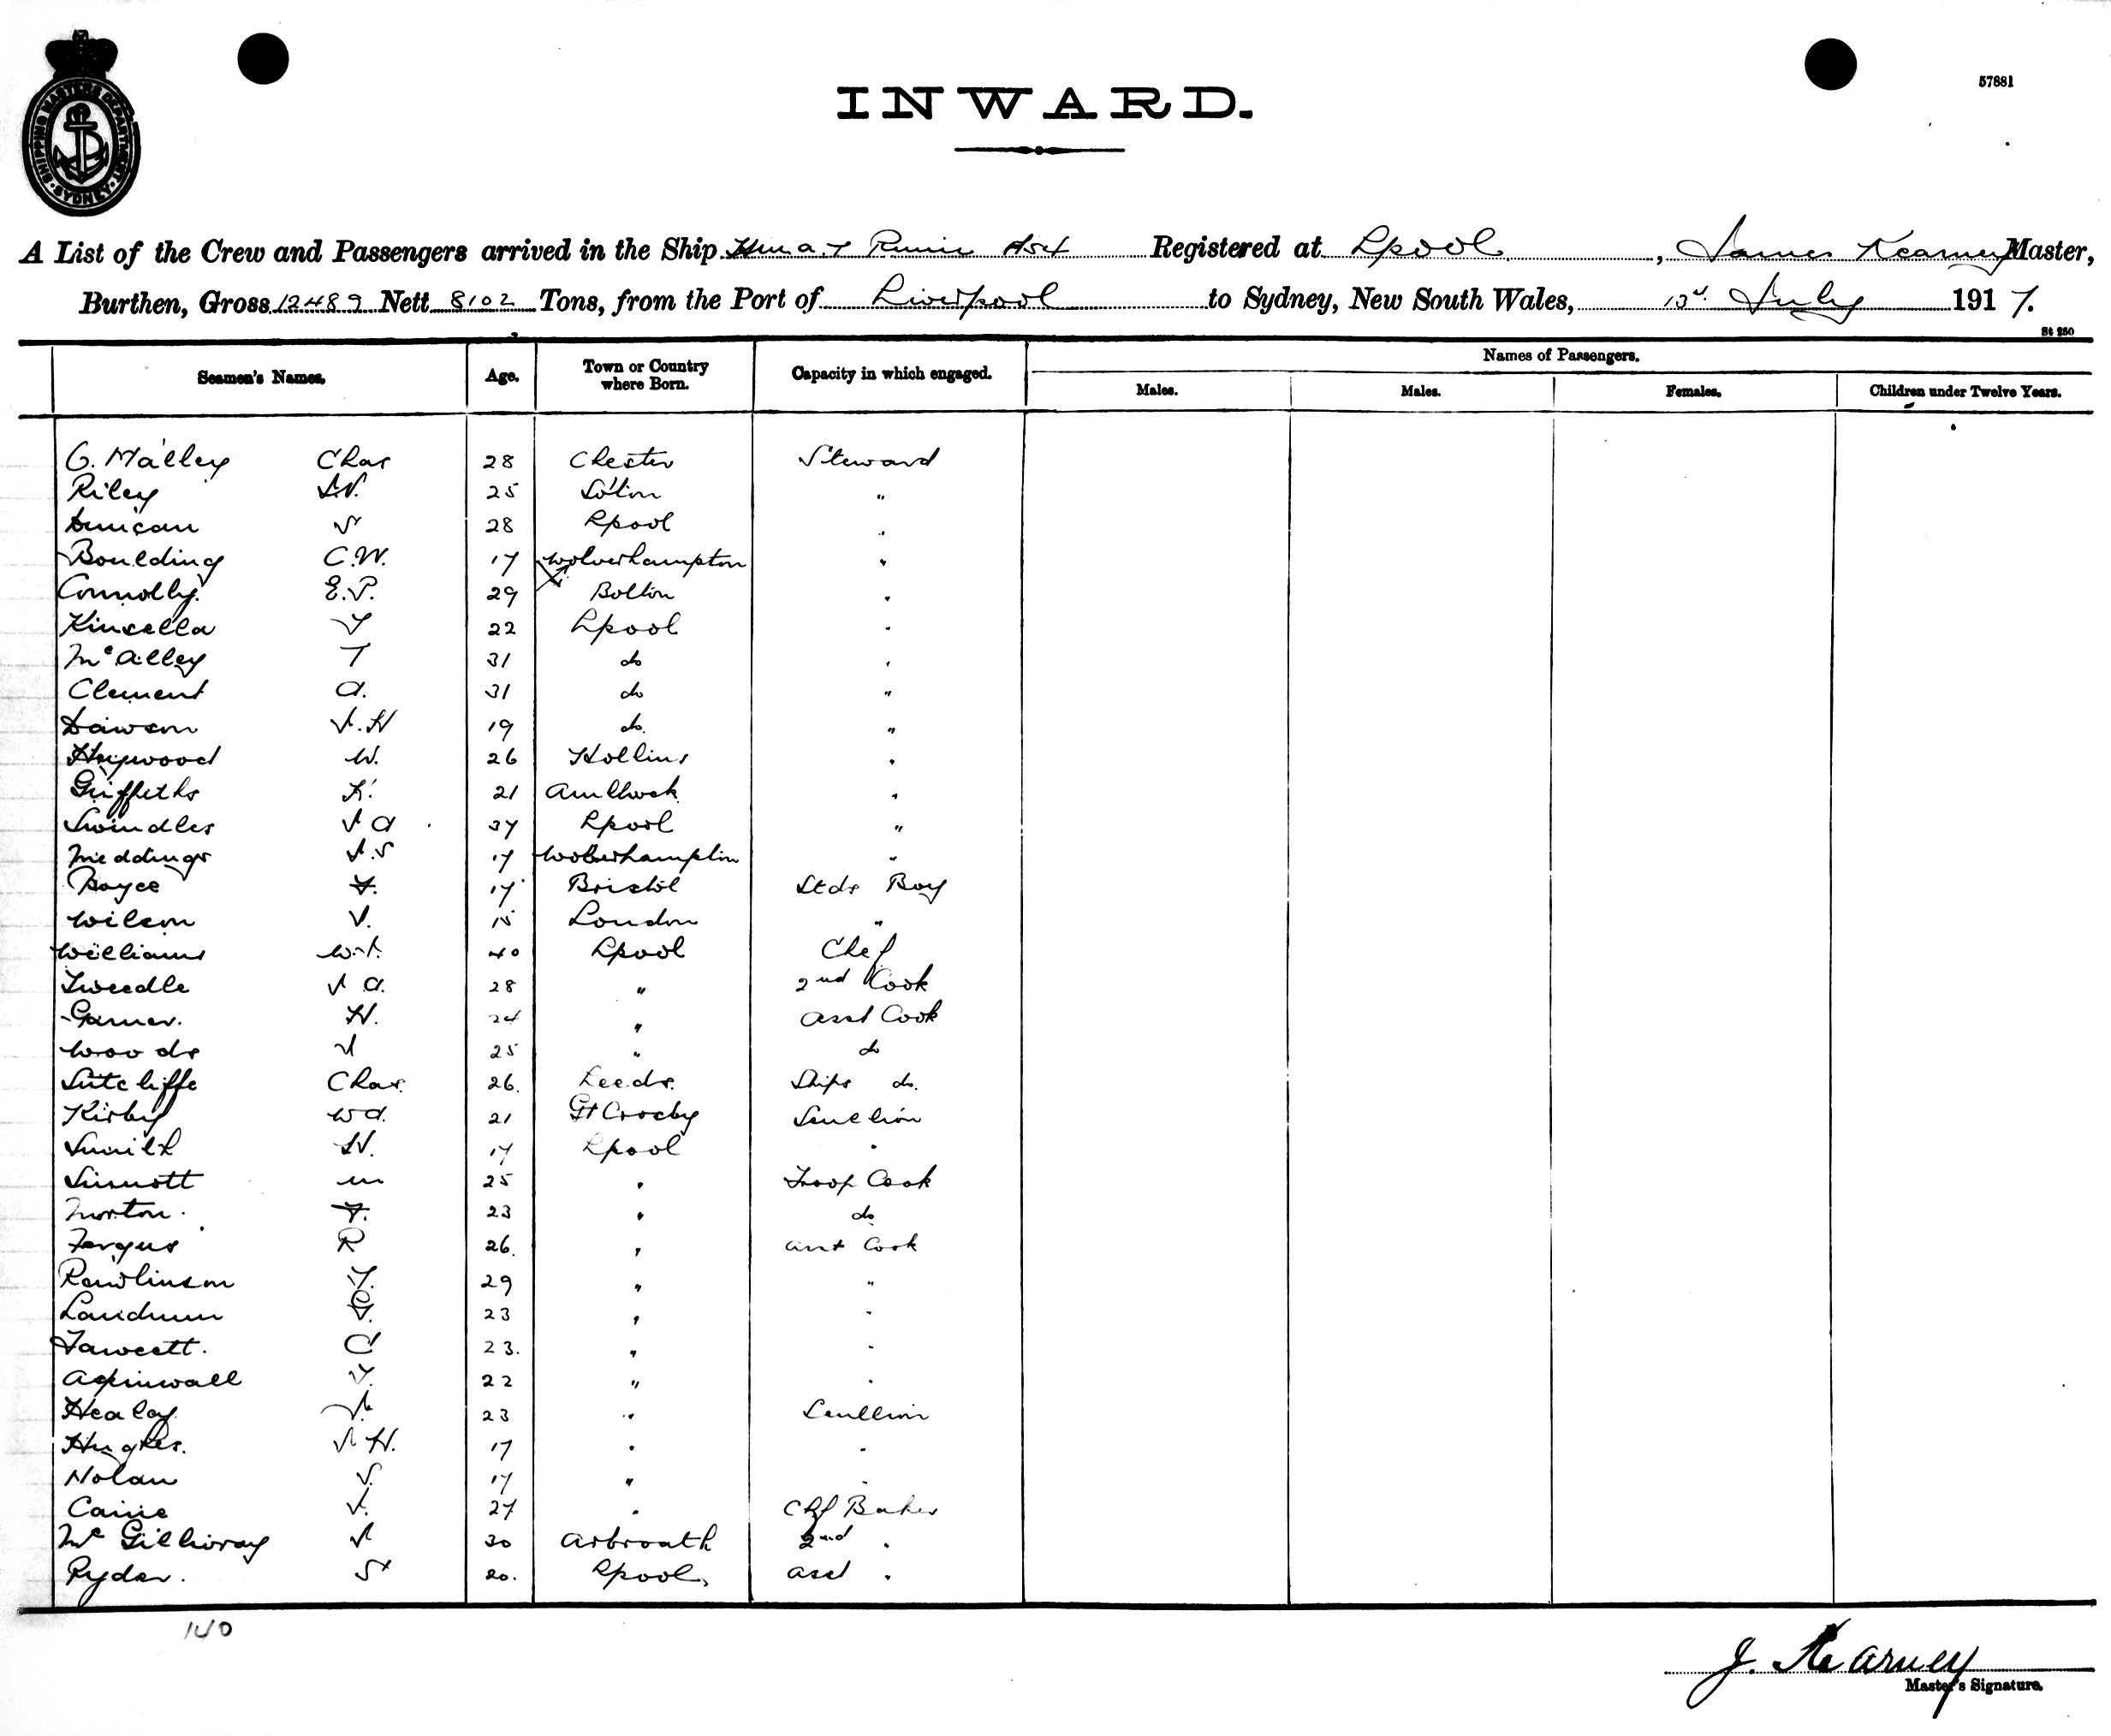 SHIPPING MASTERS DEPARTMENT · SYDNEY ·
57881
INWARD.
A List of the Crew and Passengers arrived in the Ship H.M.A.T Runic A54 Registered at Lpool, James Kearney Master,
Burthen, Gross 12489 Nett 8102 Tons, from the Port of Liverpool to Sydney, New South Wales, July 1917.
St 250
Seamen's Names. Age. Town or Country where Born. Capacity in which engaged. Names of Passengers.
Males. Males. Females. Children under Twelve Years.
O. Malley Chas 28 Chester Steward
Riley 25 So'ton "
Duncan 28 Lpool "
Boulding C.W. 17 Wolverhampton "
Connolly. E.P. 29 Bolton "
Kinsella 22 Lpool "
McAlley T 31 do "
Clement A. 31 do "
Dawson J.H 19 do. "
Heywood W. 26 Hollins "
Griffiths 21 Amllwch "
Swindles J A 37 Lpool "
Meddings J.S 17 Wolverhampton "
Boyce F. 17 Bristol Stds Boy
Wilson J. 15 London "
Williams W.J. 40 Lpool Chef
Tweedle J A. 28 " 2nd Cook
Garner. H. 24 " Asst Cook
Woods J 25 " do
Sutcliffe Chas. 26. Leeds. Ships do.
Kirby W A. 21 Gt Crosby Scullion
Smith H. 17 Lpool "
Sinnott M 25 " Troop Cook
Norton. F. 23 " do
Fergus R 26. " Asst Cook
Rawlinson T. 29 " "
Landrum G. 23 " "
Fawcett. A 23. " "
Aspinwall T. 22 " "
Healey J. 23 " Scullion
Hughes. J H. 17 " "
Nolan J. 17 " "
Caine J. 27 " Chf Baker
McGillivray J 30 Arbroath 2nd "
Ryder. 20. Lpool. Asst "
140
J. Kearney
Master's Signature.